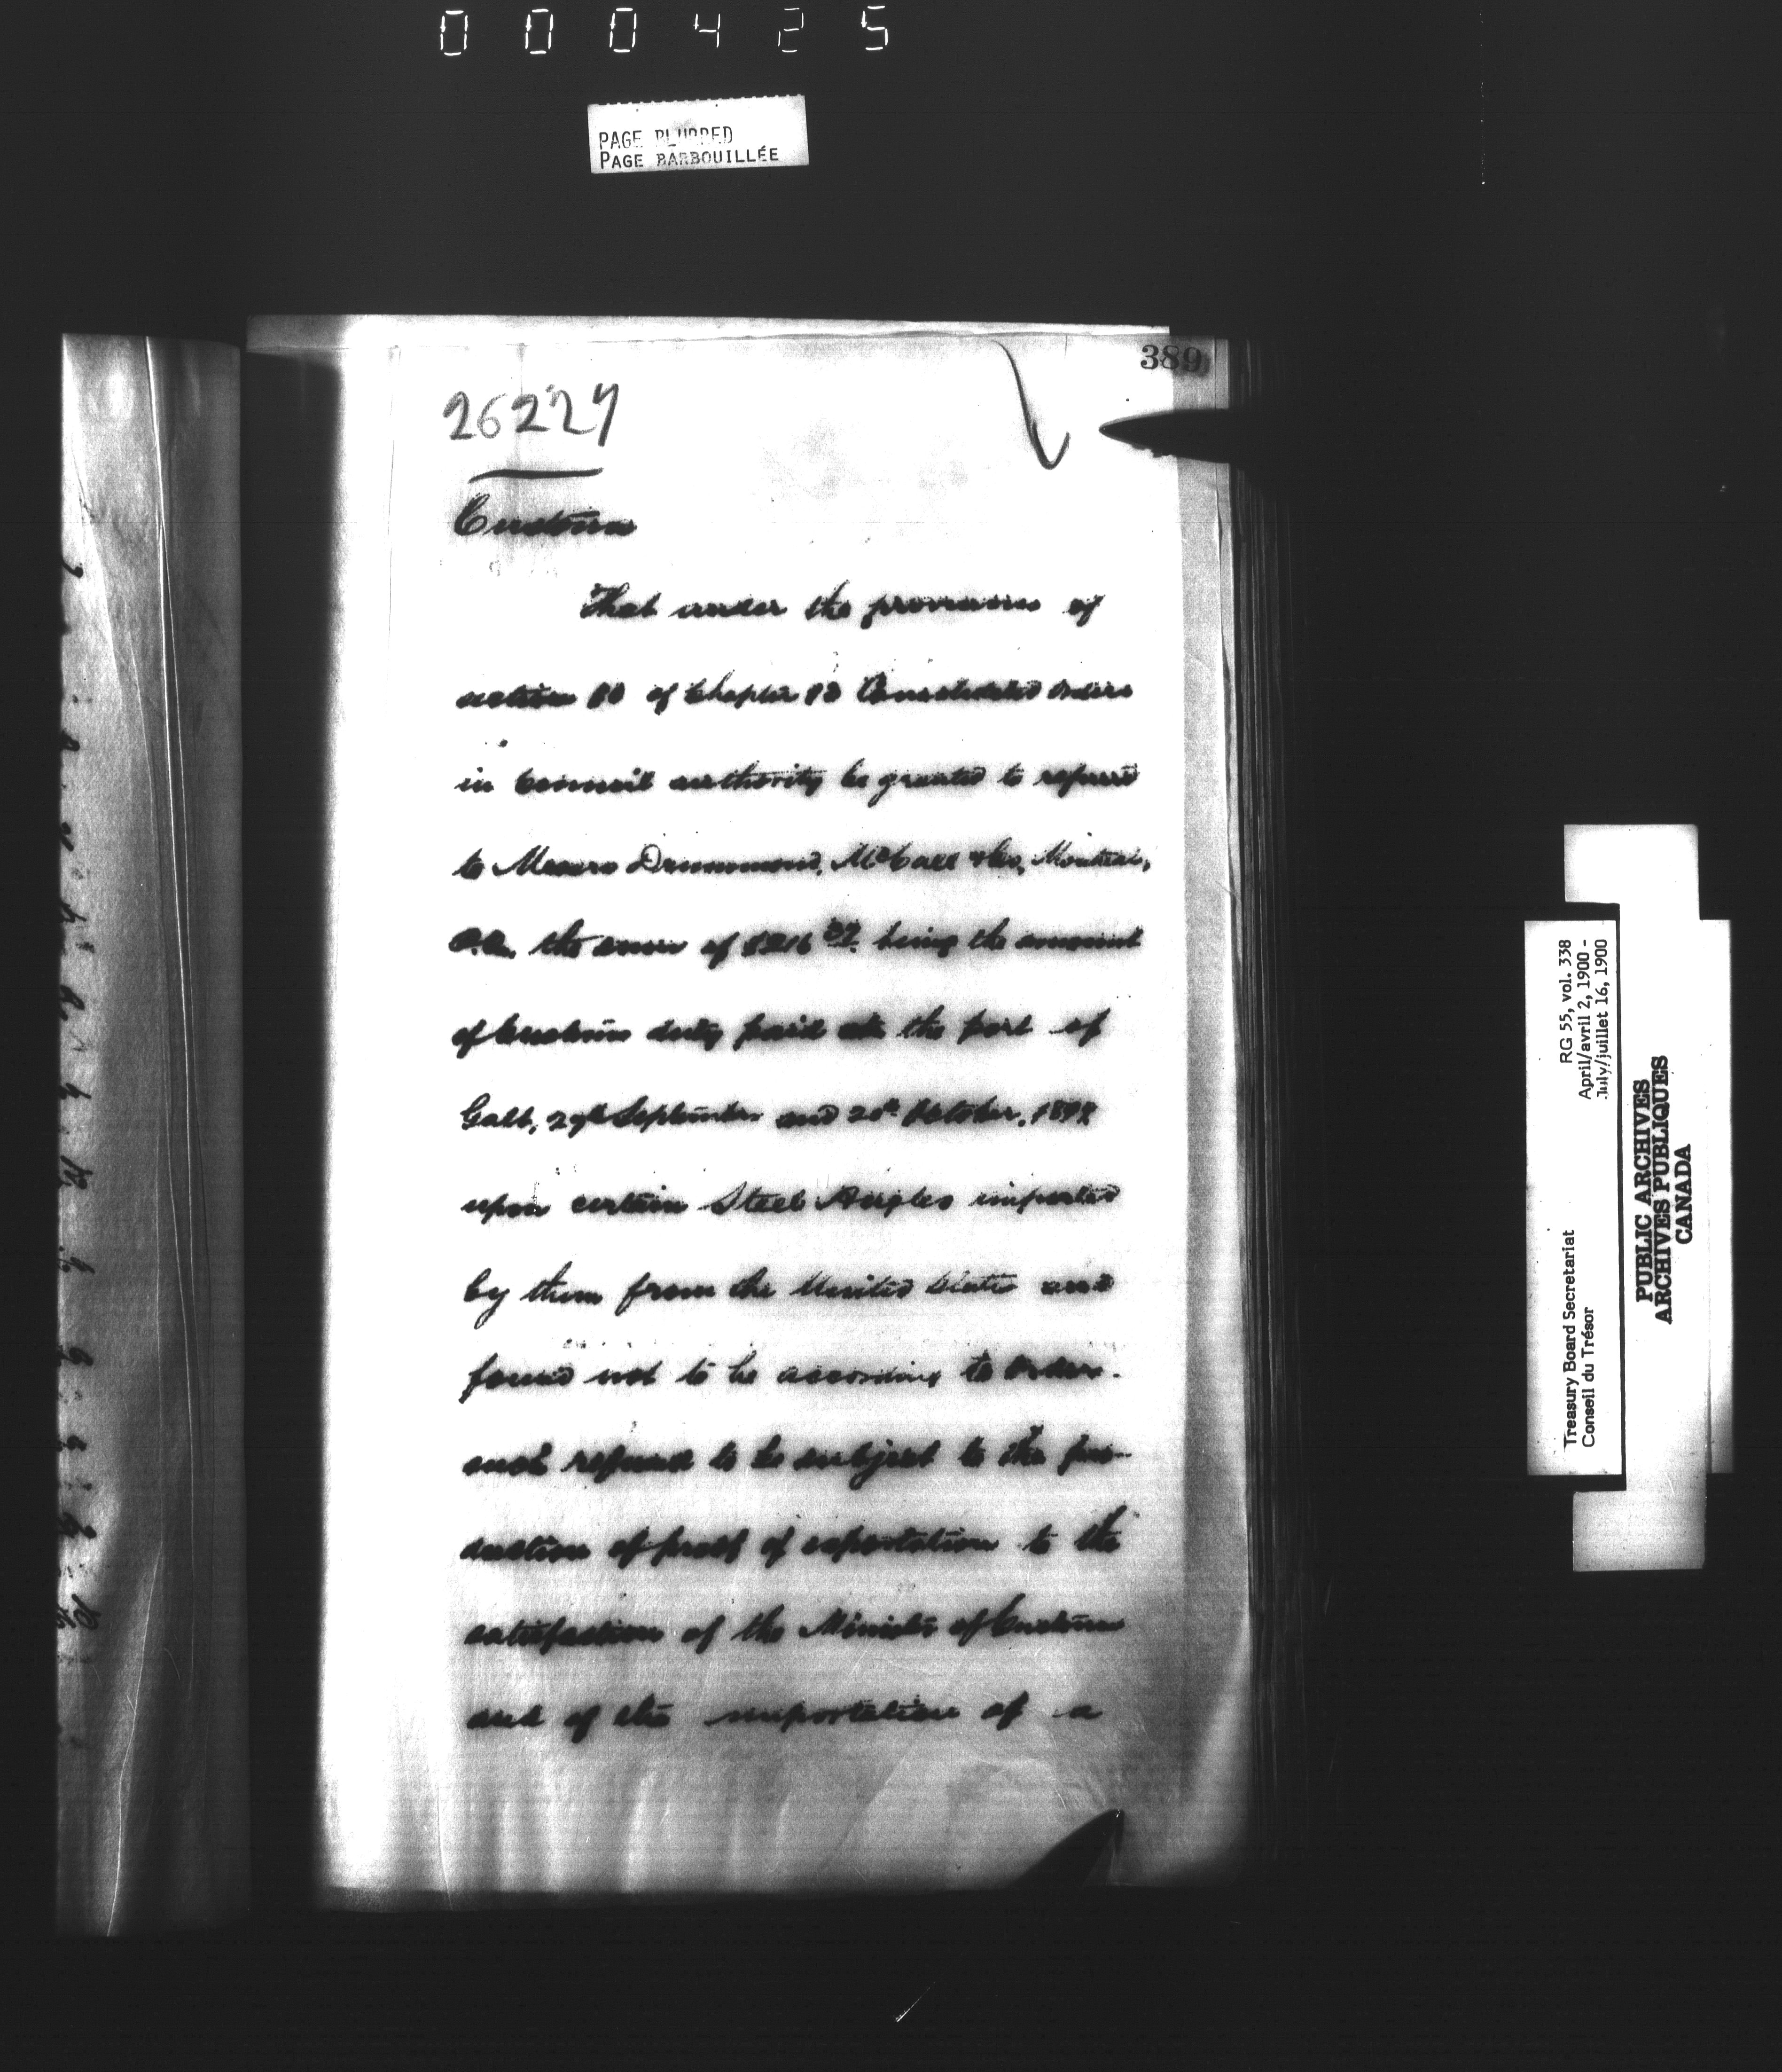 000425
PAGE BLURRED
PAGE BARBOUILLÉE
389
26227
Customs
That under the provisions of
section of Chapter Consolidated Orders
in Council authority be granted to refund
to Messrs Drummond, McCall & Co, Montreal,
P.Q. the sum of being the amount
of Customs duty paid at the port of
Galt, September and 20th October, 1899
upon certain Steel Angles imported
by them from the United States and
found not to be according to order.
such refund to be subject to the pro-
duction of proof of exportation to the
satisfaction of the Minister of Customs
and of the importation of a
RG 55, vol. 338
April/avril 2, 1900 -
July/juillet 16, 1900
Treasury Board Secretariat
Conseil du Trésor
PUBLIC ARCHIVES
ARCHIVES PUBLIQUES
CANADA